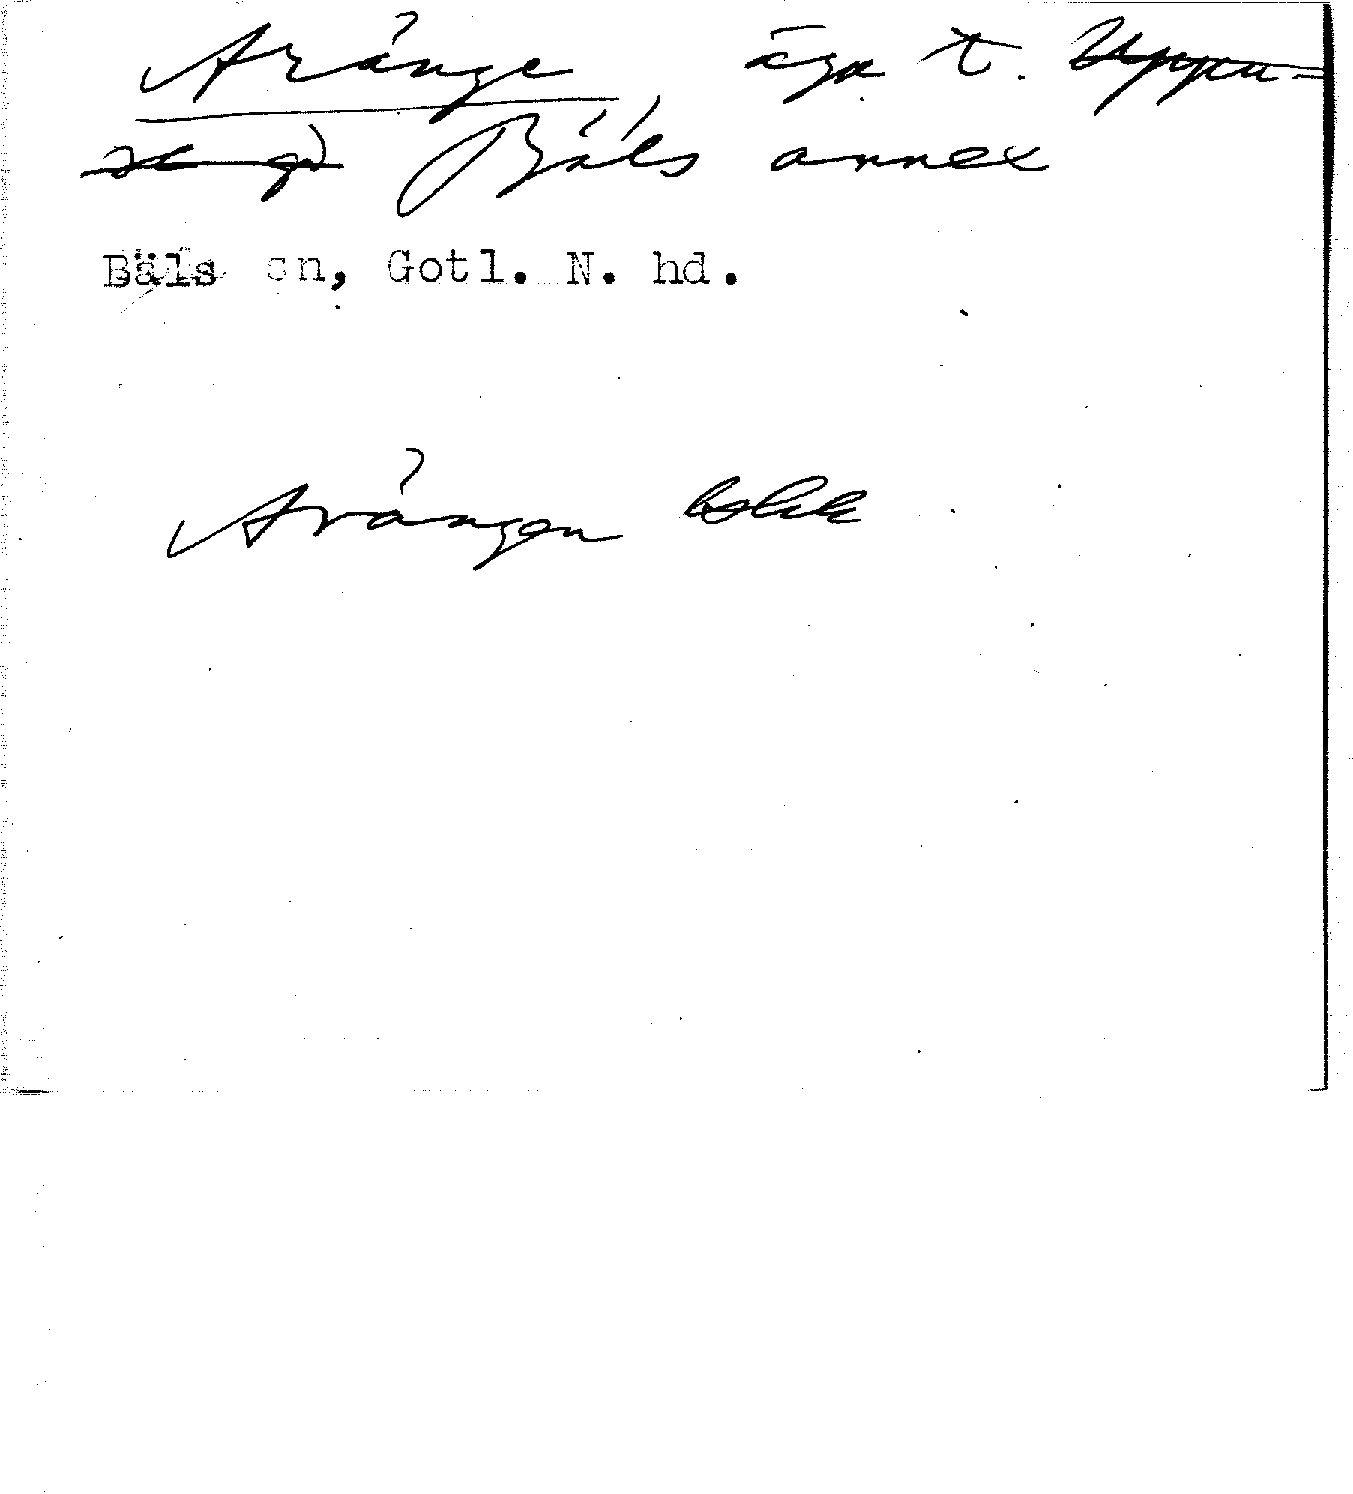 Arånge äga t. Uppen-
se gd Bäls annex
Bäls sn, Gotl. N. hd.
Arången